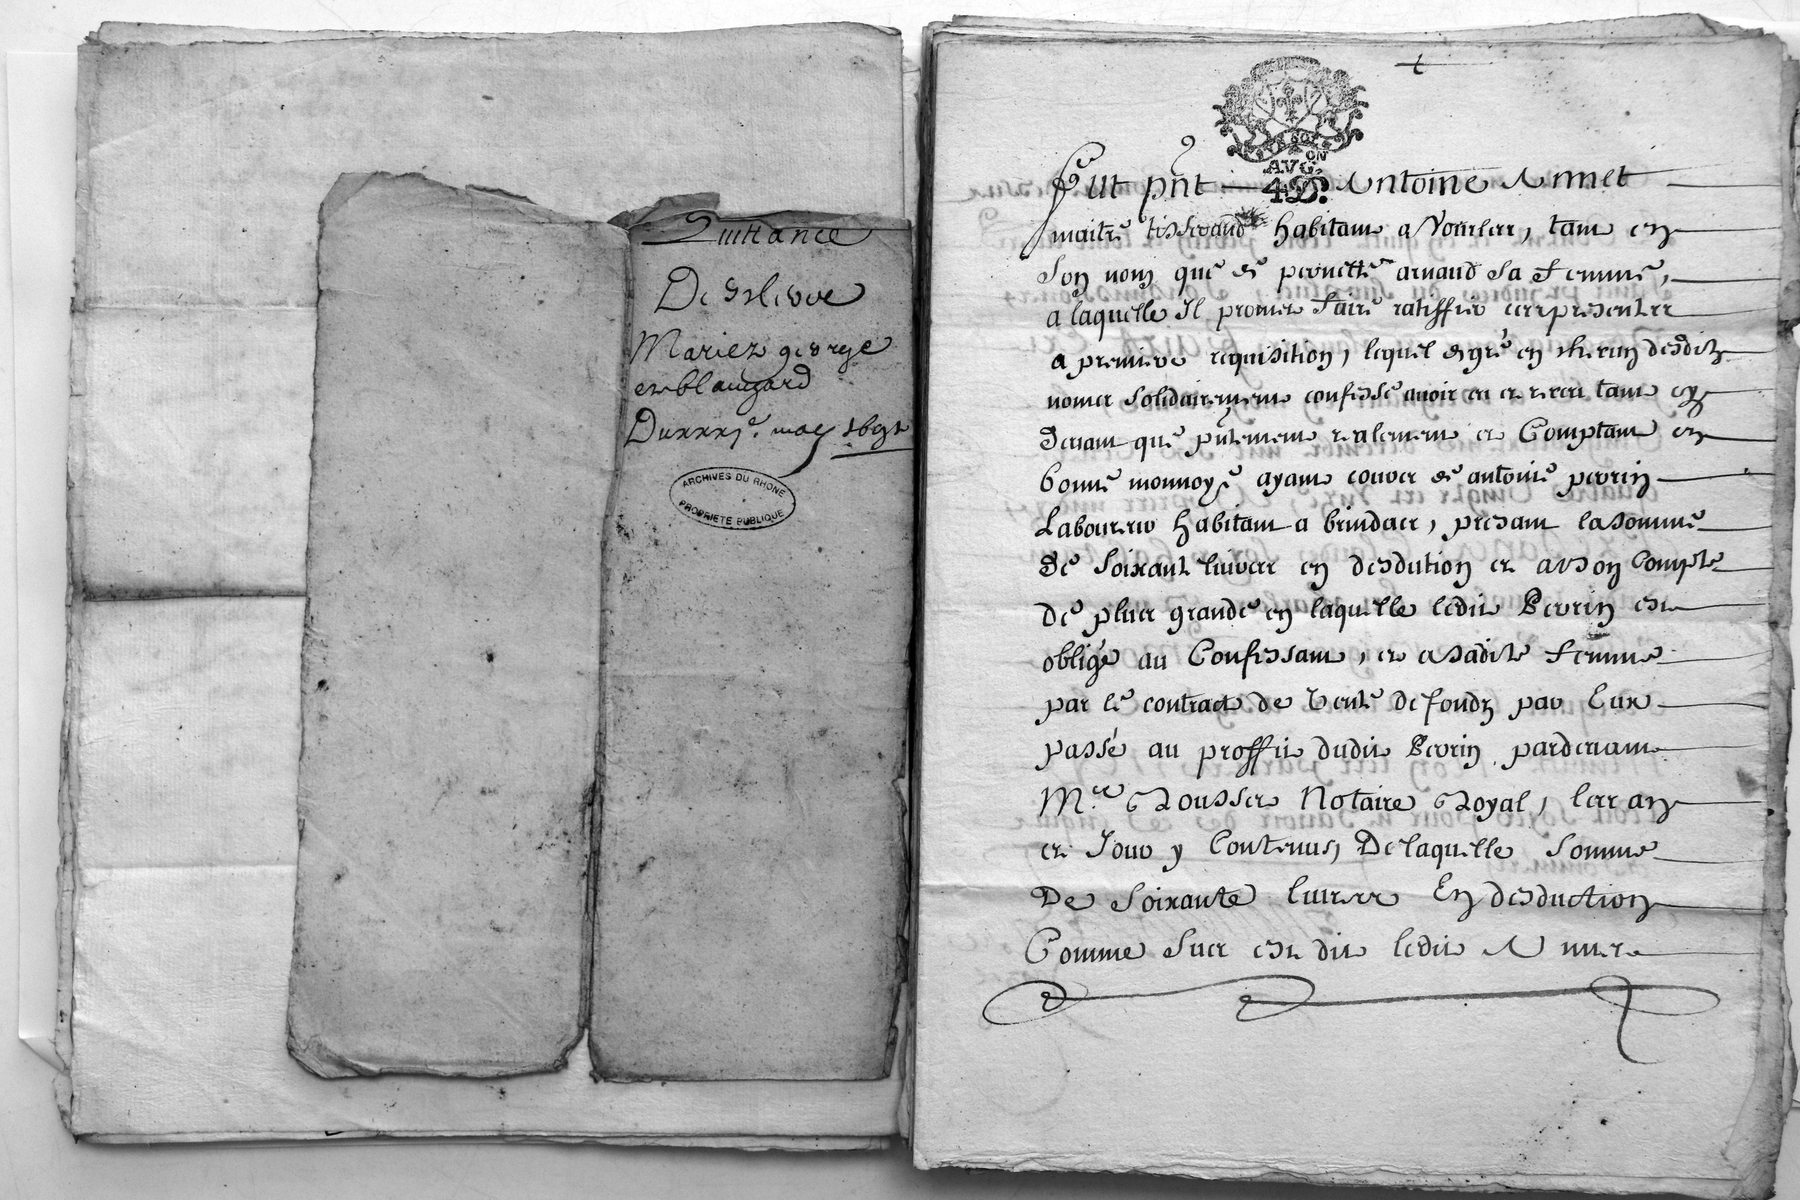 Quittance
De
Mariez george
et blançgard
Du xxxj.e may 1691
ARCHIVES DU RHONE
PROPRIETE PUBLIQUE
AVG.ON
4 D.
Fut pñt Antoine Annet
maitre tisserand habitant a Vourles, tant en
son nom que de pernette arnaud sa femme,
a laquelle Il promet faire ratiffier et representer
a premiere requisition, lequel de gré en desdits
noms solidairement confesse avoir eu et receu tant cy
devant que pñtement realement et Comptant en
bonne monnoye ayant cours de antoine perrin
Laboureur habitant a brindas, presant la somme
de soixante livres en desdution et a son Compte
de plus grande en laquelle ledit Perrin est
obligé au Confessant, et a sadite femme
par le contract de vente de fondz par Eux
passé au proffit dudit Perrin pardevant
M.re Rousset Notaire Royal, les an
et Jour y Contenus, De laquelle somme
De soixante livres En desduction
Comme sus est dit ledit Annet